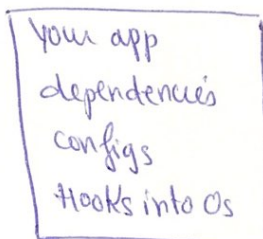 Your app
dependencies
configs
Hooks into Os